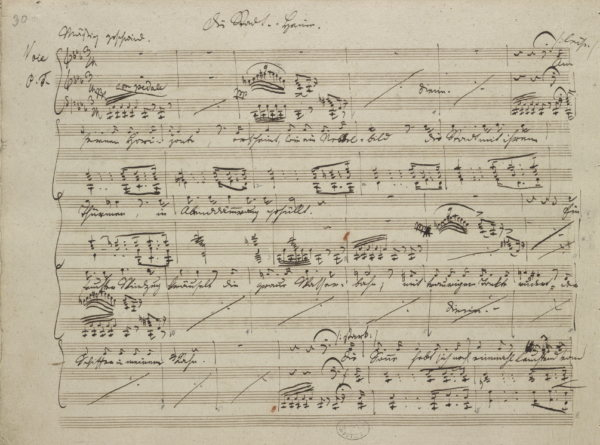 30
Die Stadt. Heine.
Mäßig geschwind.
/: leise :/
Voce
Am
P.F.
pp con pedale
pp
Simile.
fernen Horizonte erscheint, wie ein Nebelbild die Stadt mit ihren
Thürmen, in Abenddämmrung gehüllt. Ein
feuchter Windzug kräuselt die graue Wasserbahn; mit traurigem Takte rudert der
Simile.
/: stark :/
Schiffer in meinem Kahn. Die Sonne hebt sich noch einmahl leuchtend